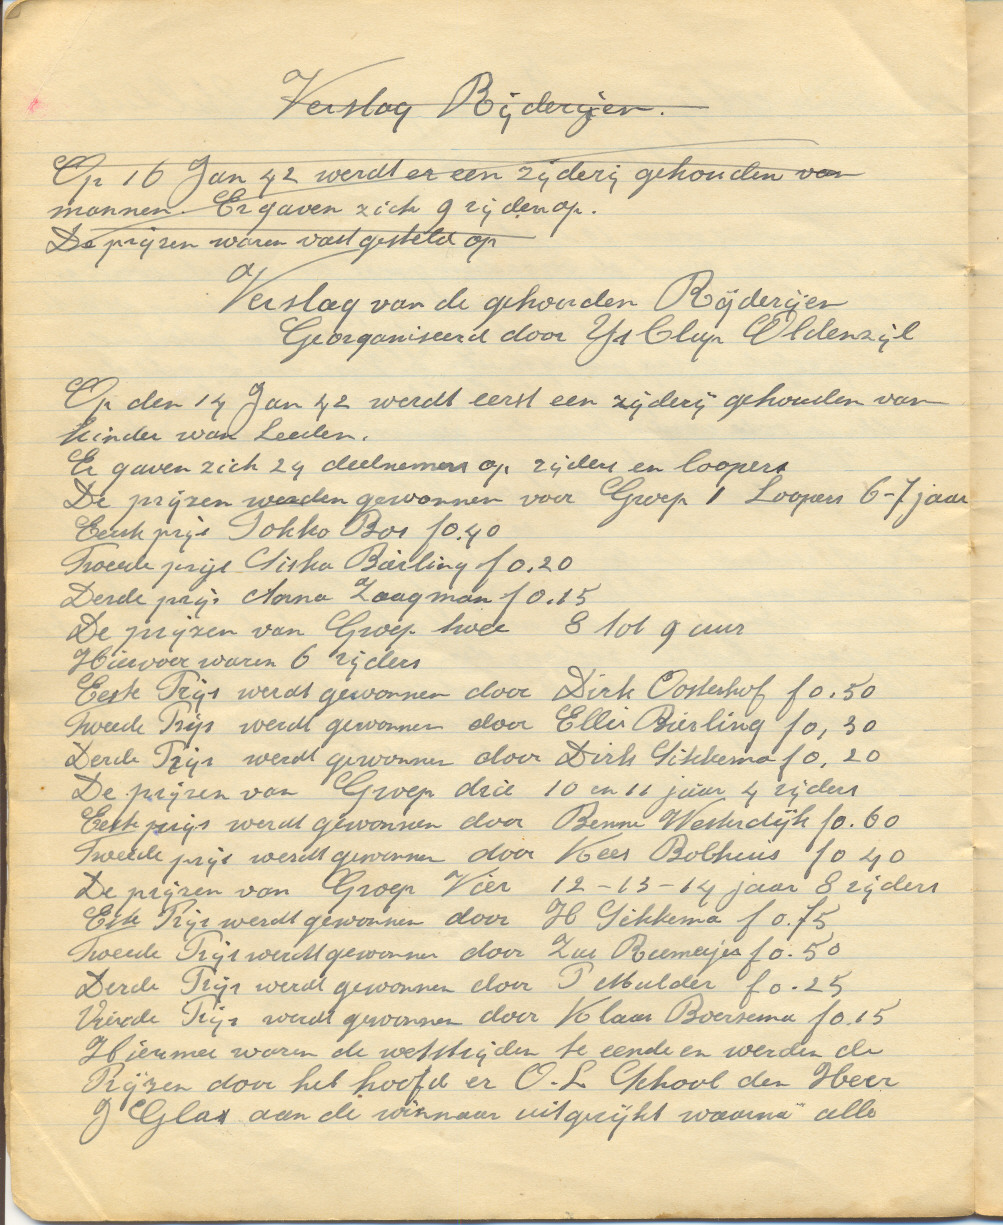 Verslag Rijderijen.
Op 16 Jan 42 werdt er een rijderij gehouden van
mannen. Er gaven zich 9 rijden op.
De prijzen waren vast gesteld op
Verslag van de gehouden Rijderijen
Georganiseerd door IJs Clup Oldenzijl
Op den 14 Jan 42 werdt eerst een rijderij gehouden van
kinder van Leeden.
Er gaven zich 24 deelnemers op rijders en loopers
De prijzen werden gewonnen voor Groep 1 Loopers 6-7 jaar
Eerste prijs Jokko Bos f0.40
Tweede prijs Siska Bierling f0.20
Derde prijs Anna Zaagman f0.15
De prijzen van Groep twee 8 tot 9 uur
Hiervoor waren 6 rijders
Eeste Prijs werdt gewonnen door Dirk Oosterhof f0.50
Tweede Prijs werdt gewonnen door Ellie Bierling f0,30
Derde Prijs werdt gewonnen door Dirk Sikkema f0,20
De prijzen van Groep drie 10 en 11 jaar 4 rijders
Eeste prijs werdt gewonnen door Benne Westerdijk f0.60
Tweede prijs werdt gewonnen door Kees Bolhuis f0 40
De prijzen van Groep Vier 12-13-14 jaar 8 rijders
Eeste Prijs werdt gewonnen door H Sikkema f0.75
Tweede Prijs werdt gewonnen door f0.50
Derde Prijs werdt gewonnen door P Mulder f0.25
Vierde Prijs werdt gewonnen door Klaas Boersema f0.15
Hiermee waren de wetstrijden te eende en werden de
Prijzen door het hoofd er O-L School den Heer
J Glas aan de winnaar uitgerijkt waarna alle